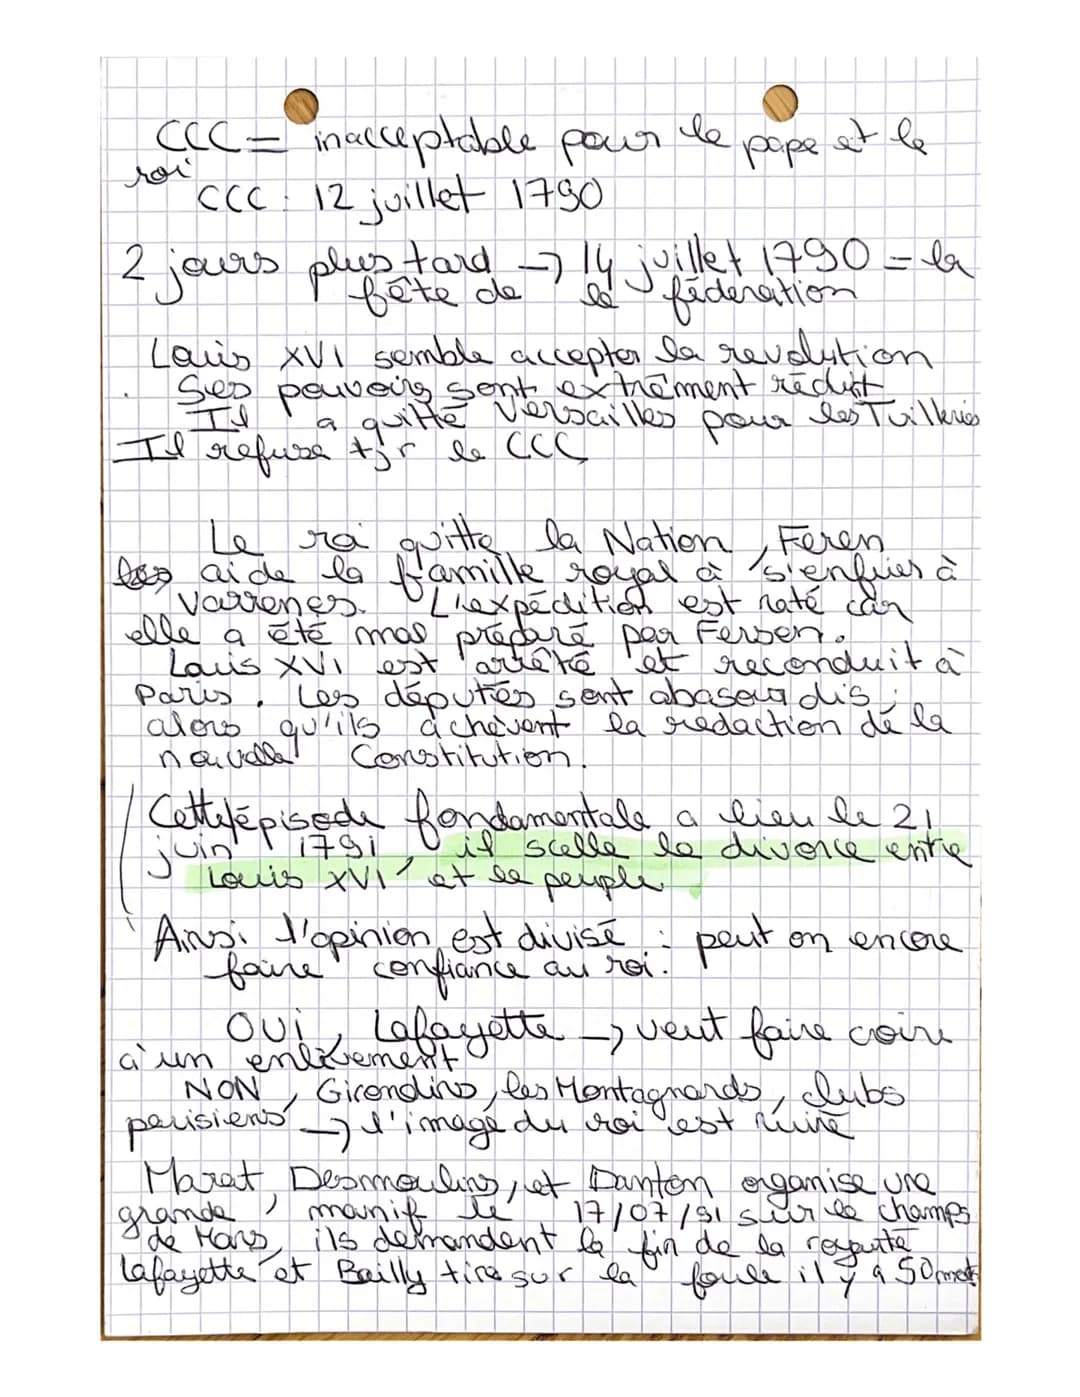 CCC = inacceptable pour le pape et le
roi
CCC : 12 juillet 1790
2 jours plus tard → 14 juillet 1790 = la
fête de la féderation
Louis XVI semble accepter la revolution
Ses pouvoirs sont extrêment réduit
Il a quitté Versailles pour les Tuilleries
Il refuse tjr la CCC
Le roi quitte la Nation, Feren
aide la framille royal à s'enfuier à
Varrenes. L'expédition est raté car
elle a été mal préparé par Fersen.
Louis XVI est arrêté et reconduit à
Paris. Les députés sont abasourdis ;
alors qu'ils achèvent la redaction de la
nouvelle Constitution.
Cette épisode fondamentale a lieu le 21
juin 1791 il scelle le divorce entre
Louis XVI et le peuple
Ainsi l'opinion est divisé : peut on encore
faire confiance au roi.
OUI, Lafayette → veut faire coire
à un enlèvement
NON, Girondins, les Montagnards, clubs
parisiens → l'image du roi est ruiné
Marat, Desmoulins, et Danton organise une
grande manif le 17/07/91 sur le champs
de Mars, ils demandent la fin de la royauté
Lafayette et Bailly tire sur la foule il y a 50 morts